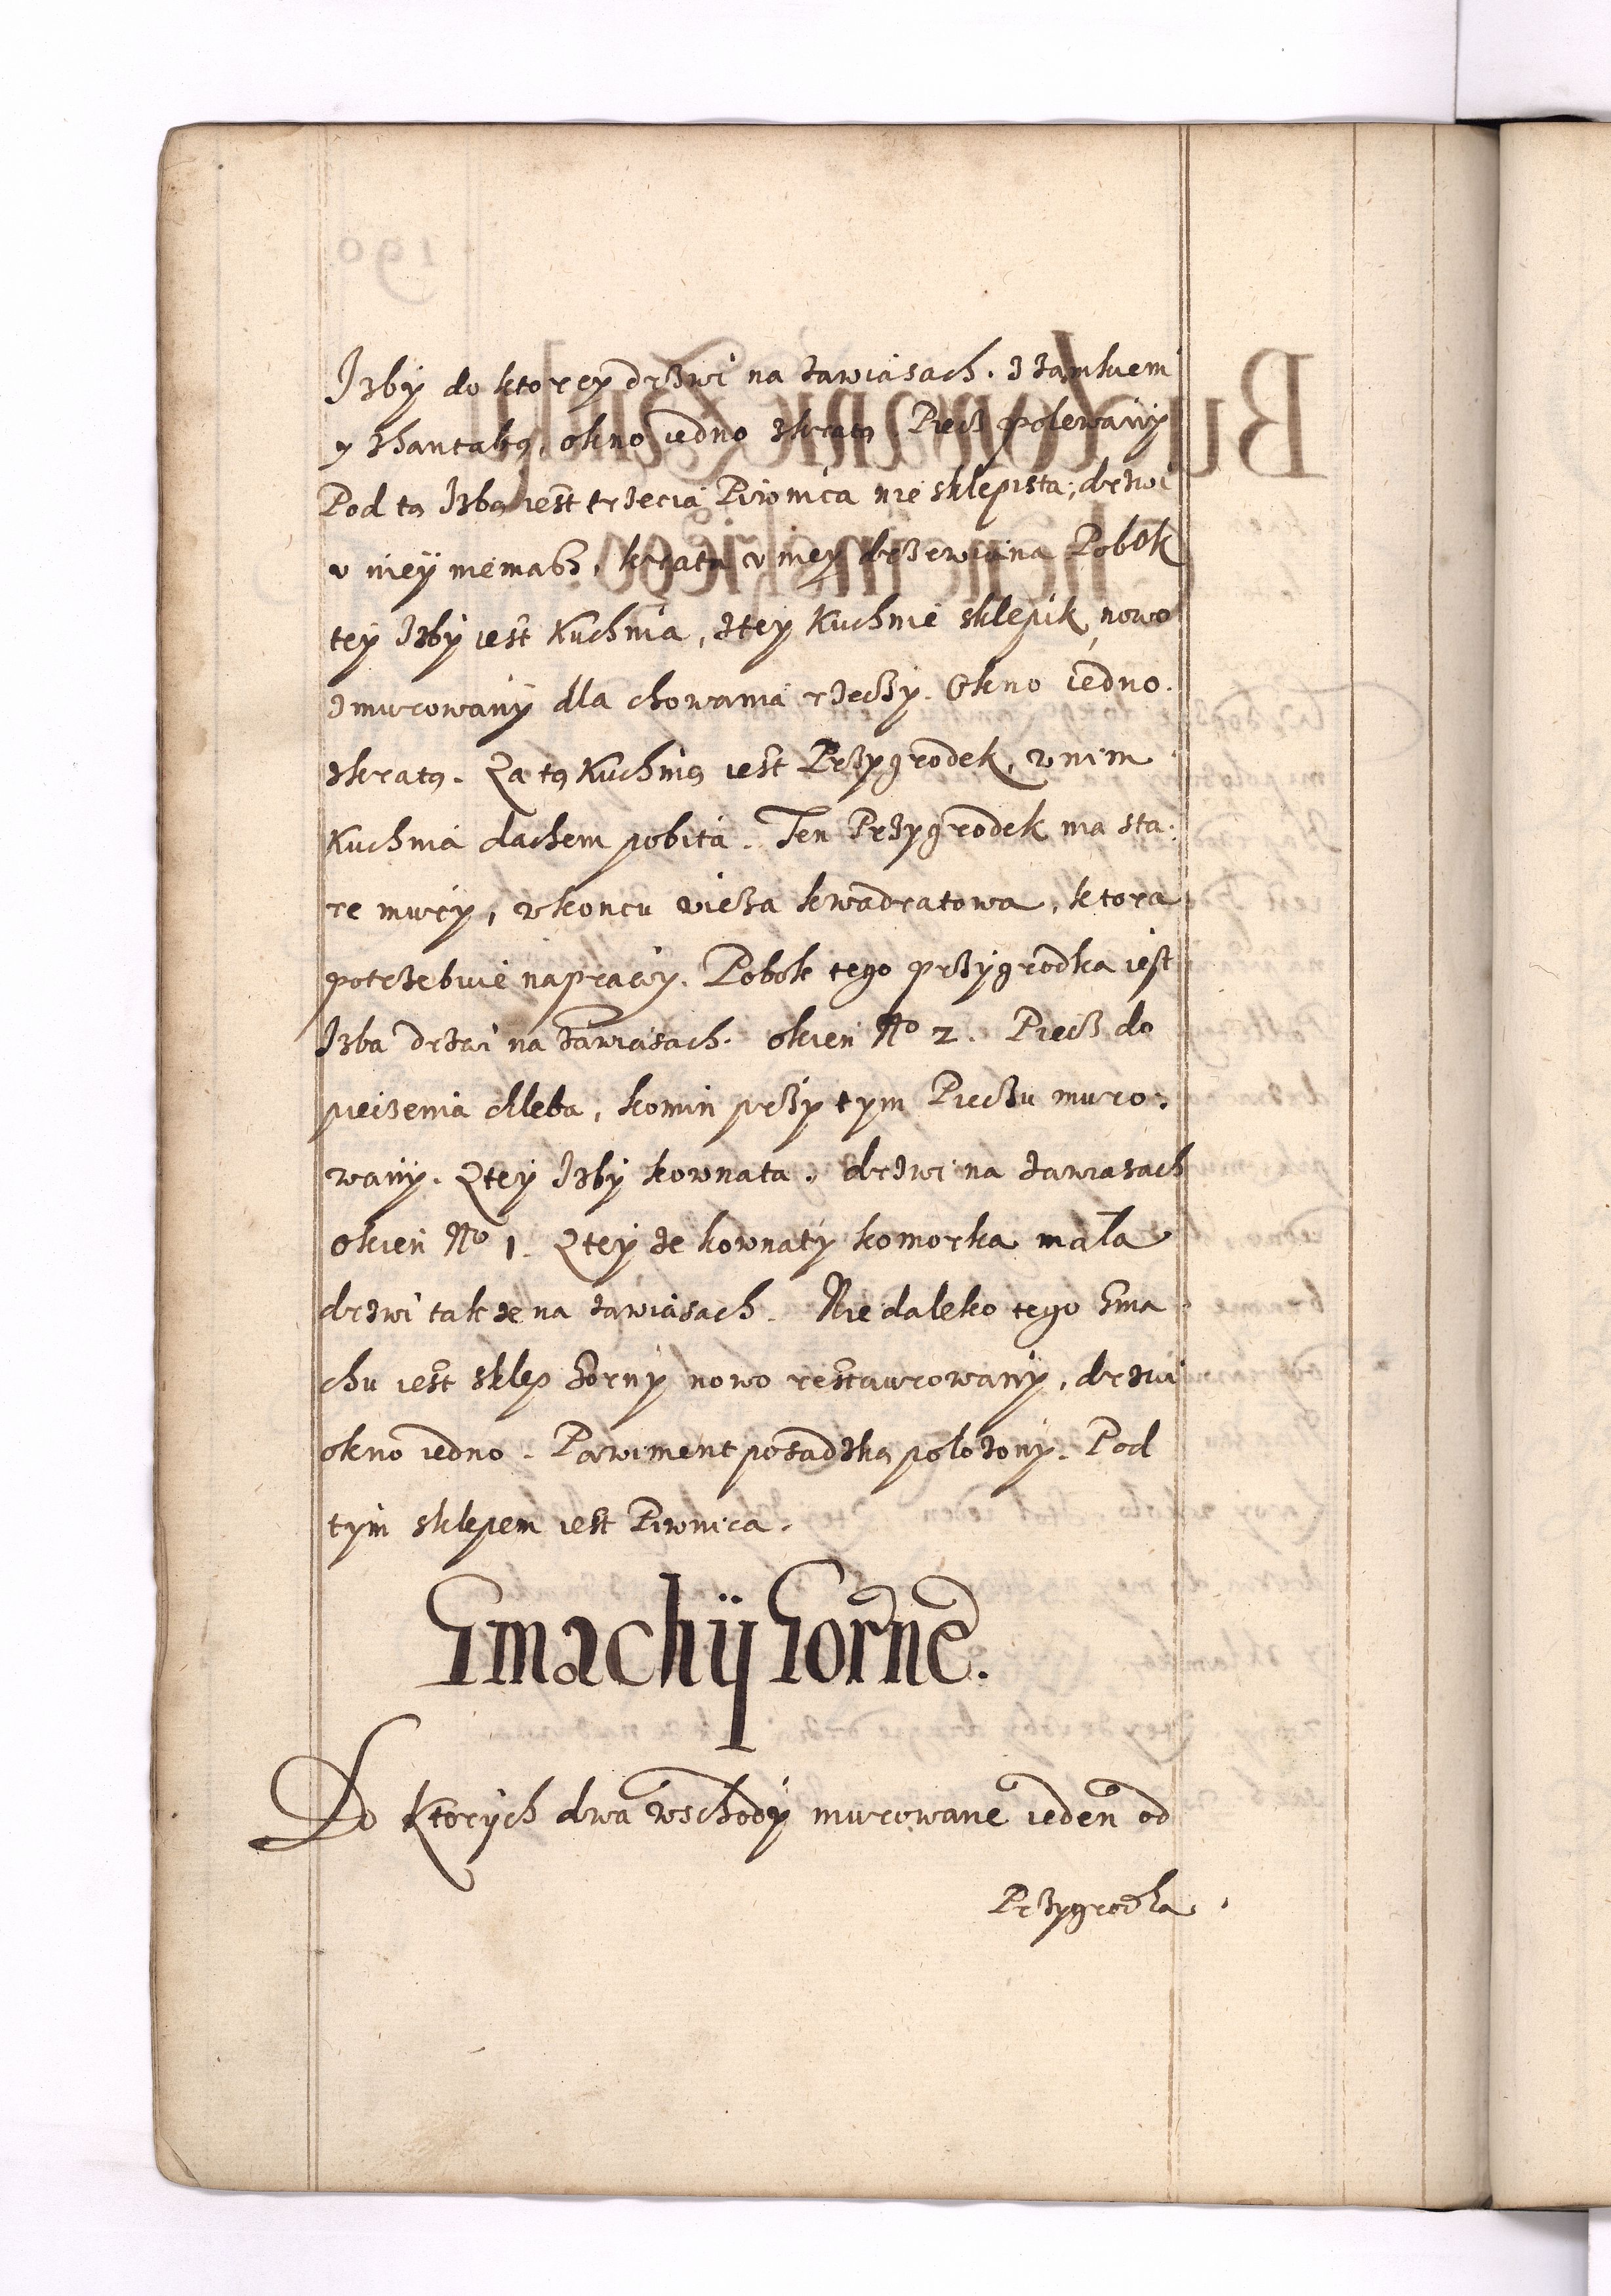 Izby do ktorey drzwi na zawiasach. z zamkiem
y zhantabą, okno iedno zkratą Piecz polewany
Pod tą Izbą iest trzecia Piwnica nie sklepista, drzwi
v niey niemasz, krata v niey drzewiana Pobok
tey Izby iest Kuchnia, ztey Kuchnie sklepik nowo
zmurowany dla chowania rzeczy. Okno iedno.
zkratą. Za tą Kuchnią iest Przygrodek, w nim
Kuchnia dachem pobita. Ten Przygrodek ma sta:
re mury, wkoncu wieza kwadratowa, ktora
potrzebuie naprawy. Pobok tego przygrodka iest
Izba drzwi na zawiasach. okien No 2. Piecz do
pieczenia chleba, komin przy tym Pieczu muro:
wany. Ztey Izby kownata, drzwi na zawiasach
okien No 1. Ztey ze kownaty komorka mała
drzwi takze na zawiasach. Nie daleko tego Gma
chu iest sklep Gorny nowo restaurowany, drzwi
okno iedno. Pawiment posadzką połozony. Pod
tym sklepem iest Piwnica.
Gmachy Gorne.
Do Ktorych dwa wschody murowane ieden od
Przygrodka.